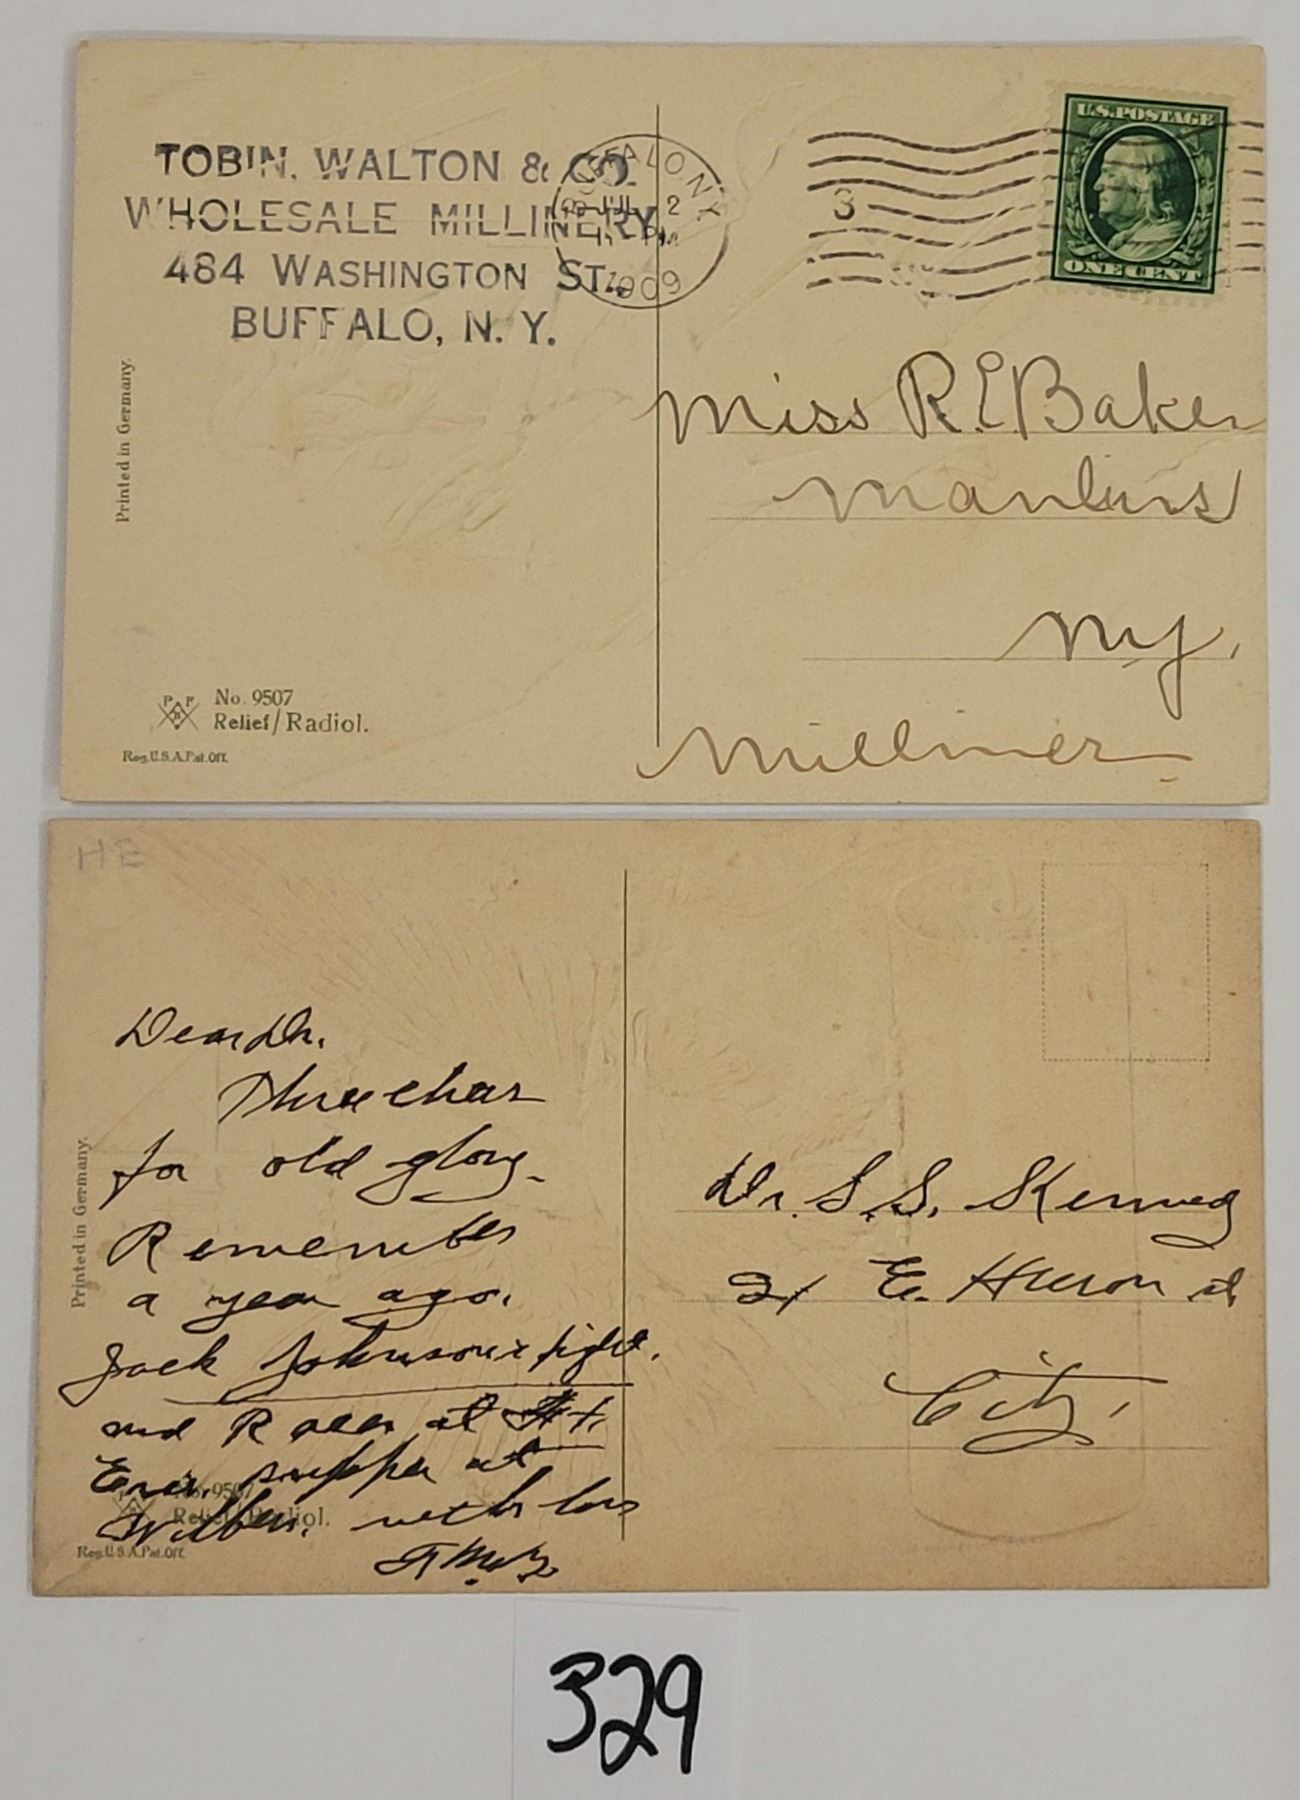 TOBIN, WALTON & CO.
WHOLESALE MILLINERY,
484 WASHINGTON ST.,
BUFFALO, N. Y.
BUFFALO, N.Y.
JUL 2
PM
1909
3
U.S. POSTAGE
ONE CENT
Miss R. E. Baker
Manlius
N.Y.
Milliner
Printed in Germany.
P F B
No. 9507
Relief/Radiol.
Reg. U.S.A. Pat. Off.
HE
Dear Dr.
Three chears
for old glory.
Remember
a year ago.
Jack Johnson's fight.
and Races at Ft.
Erie, supper at
with
Dr. S. S.
21 E. Huron st
City.
Printed in Germany.
P F B
No. 9507
Relief/Radiol.
Reg. U.S.A. Pat. Off.
329